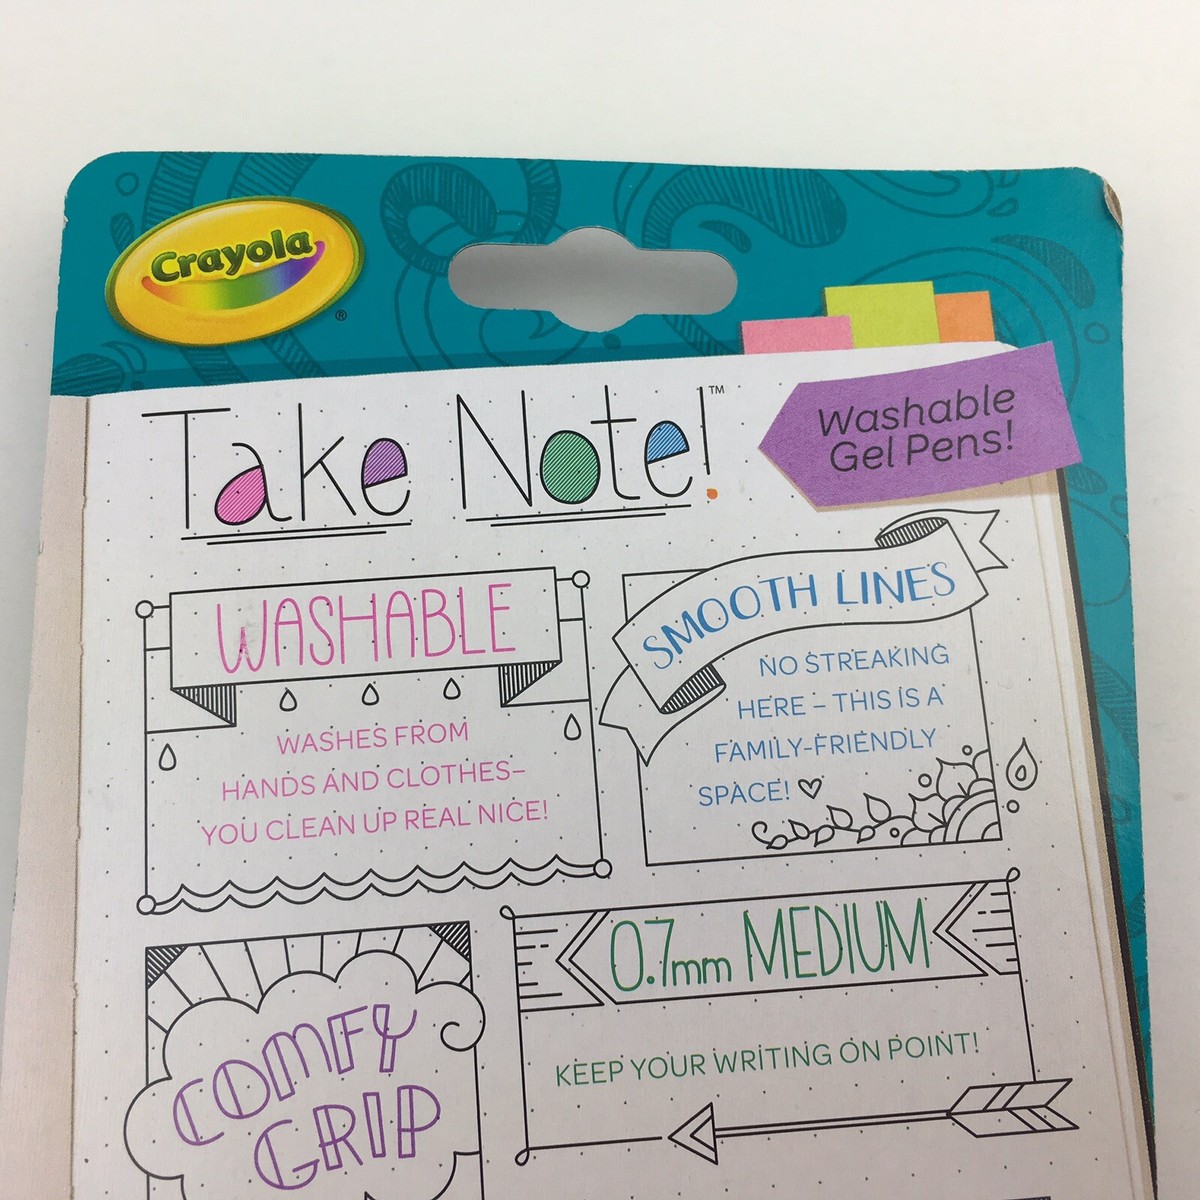 Crayola
®
Take Note!™
Washable
Gel Pens!
WASHABLE
WASHES FROM
HANDS AND CLOTHES–
YOU CLEAN UP REAL NICE!
SMOOTH LINES
NO STREAKING
HERE – THIS IS A
FAMILY-FRIENDLY
SPACE!
COMFY
GRIP
0.7mm MEDIUM
KEEP YOUR WRITING ON POINT!